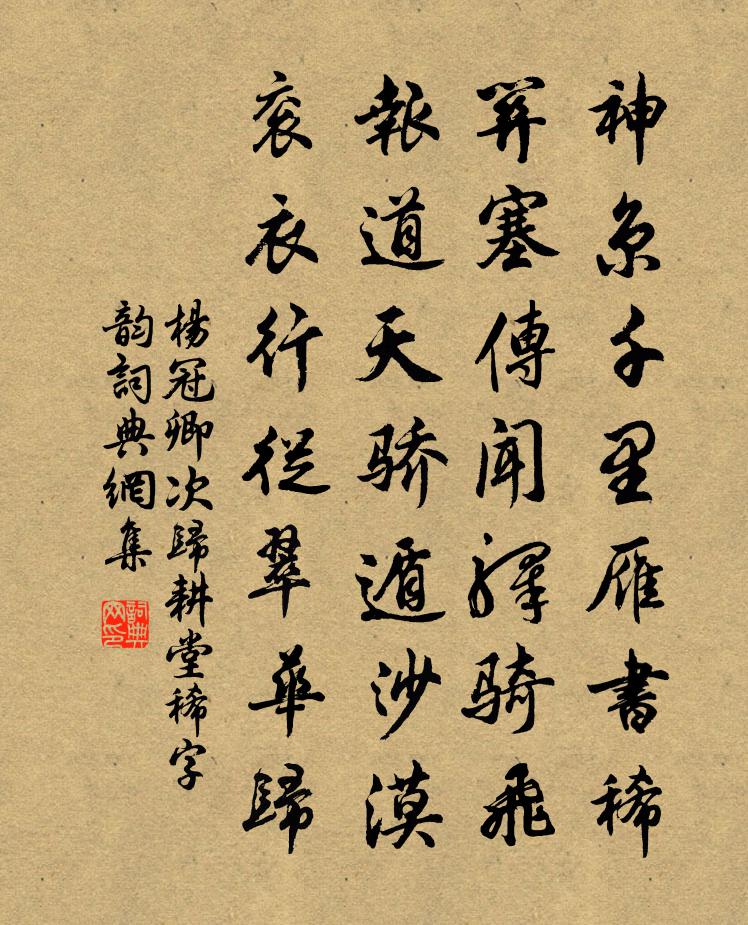 神京千里雁書稀
笄塞傳聞驛骑飛
報道天骄遁沙漠
衮衣行從翠華歸
楊冠卿次歸耕堂稀字
韵詞典網集
詞典网印